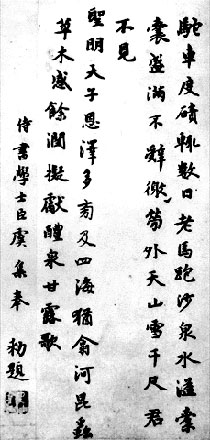 駝車度磧輒數日老馬跑沙泉水溢橐
囊盛滿不辭外天山雪千尺君
不見
聖明天子恩澤多旁及四海猶翕河昆蟲
草木感餘潤擬獻醴泉甘露歌
侍書學士臣虞集奉 勅題